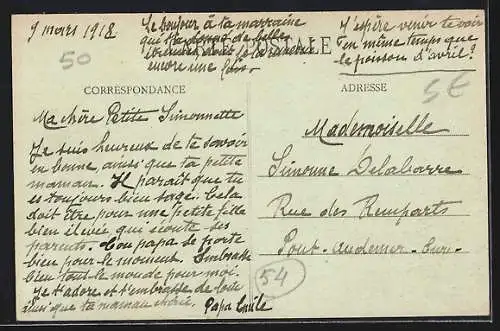 9 mars 1918
Le bonjour à ta marraine
qui t'a donné de belles
à la
encore une fois.
J'espère venir te voir
en même temps que
le poisson d'avril ?
CARTE POSTALE
50
5€
CORRESPONDANCE
ADRESSE
Ma chère Petite Simonnette
Je suis heureux de te savoir
en bonne, ainsi que ta petite
maman. Il parait que tu
es toujours bien sage. Cela
doit être pour une petite fille
bien élevée qui écoute ses
parents. Ton papa se porte
bien pour le moment. Embrasse
bien tout le monde pour moi.
Je t'adore et t'embrasse de loin
ainsi que ta maman chérie.
Papa Emile
Mademoiselle
Simonne Delabarre
Rue des Remparts
Pont-Audemer - Eure -
54